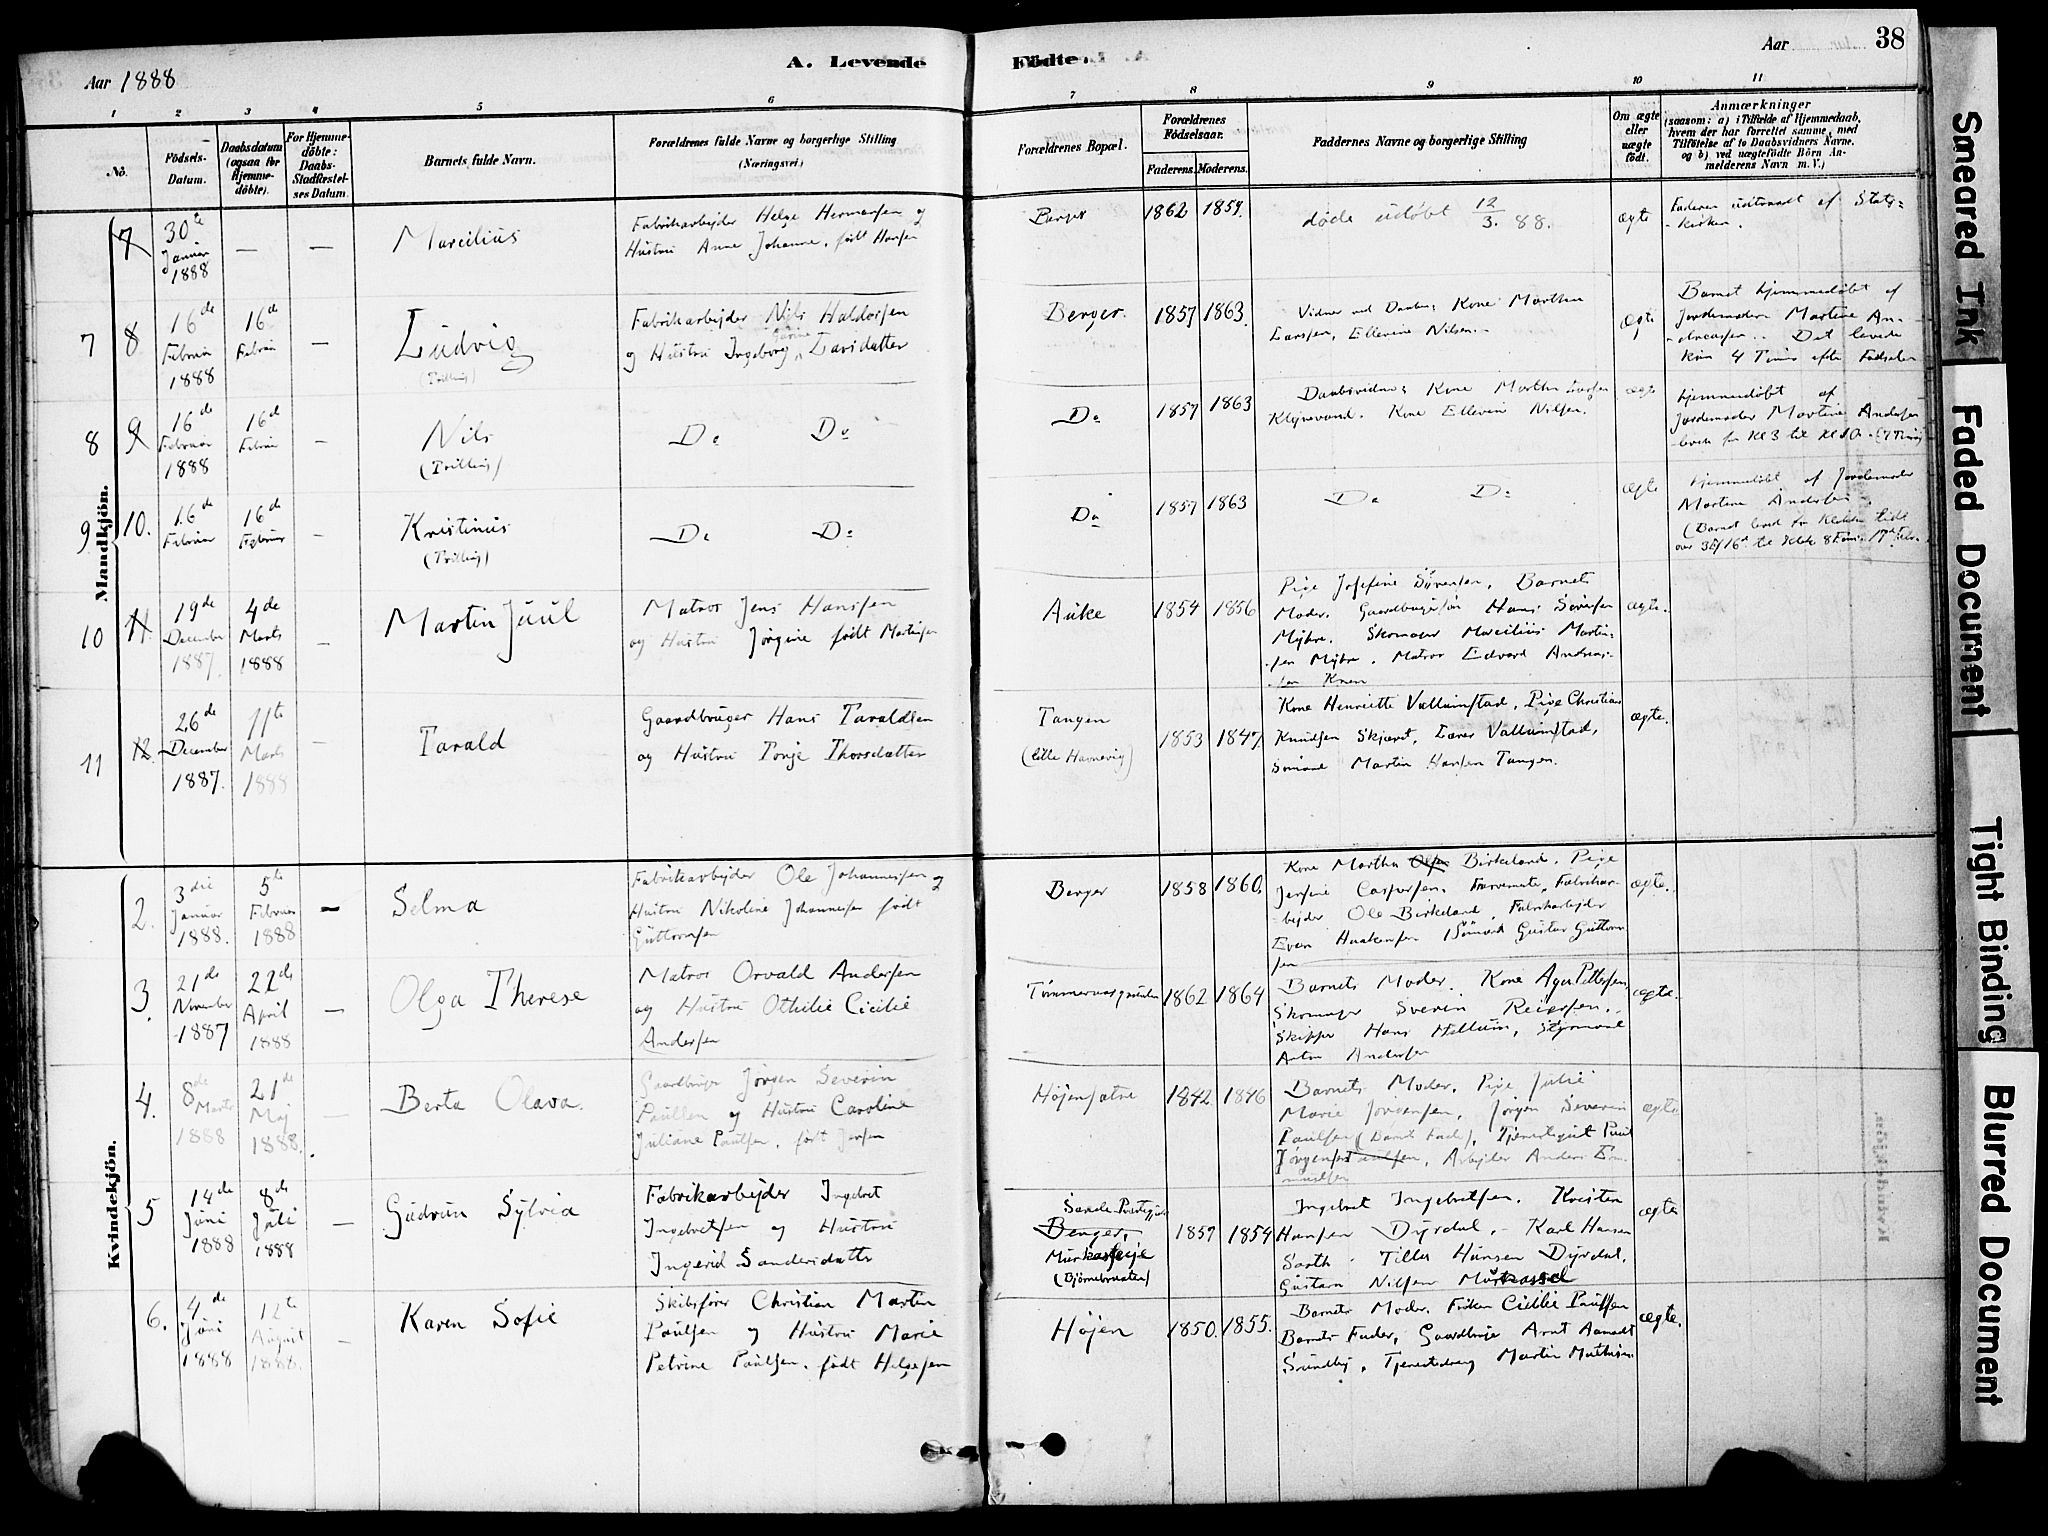 Aar 1888
A. Levende
Födte.
Aar
38
1
2
3
4
5
6
7
8
9
10
11
No.
Födsels-
Datum.
Daabsdatum
(ogsaa for
Hjemme-
döbte).
For Hjemme-
döbte:
Daabs-
Stadfæstel-
ses Datum.
Barnets fulde Navn.
Forældrenes fulde Navne og borgerlige Stilling
(Næringsvei.)
Forældrenes Bopæl.
Forældrenes
Födselsaar.
Faderens.
Moderens.
Faddernes Navne og borgerlige Stilling
Om ægte
eller
uægte
födt.
Anmærkninger
(saasom: a) i Tilfælde af Hjemmedaab,
hvem der har forrettet samme, med
Tilföielse af to Daabsvidners Navne,
og b) ved uægtefödte Börn An-
melderens Navn m. V.)
Mandkjön.
7
30te
Januar
1888
—
—
Marcilius
Fabrikarbejder Helge Hermansen og
Hustru Anne Johanne, født Hansen
Berger
1862
1859.
døde udøbt 12/3. 88.
ægte
Faderen udtraadt af Stats-
-kirken.
7
8
16de
Februar
1888
16de
Februar
—
Ludvig
(Trilling)
Fabrikarbejder Nils Haldorsen
og Hustru Ingeborg Larsdatter
Berger.
1857
1863.
Vidner ved Daaben, Kone Marthea
Larsen, Ellevine Nilsen.
ægte
Barnet hjemmedøbt af
Jordemoder Martine An-
-dreasen. Det levede
kun 4 Timer efter Fødselen
8
9
16de
Februar
1888
16de
Februar
—
Nils
(Trilling)
Do Do
Do
1857
1863
Daabsvidner Kone Marthea Larsen
Kone Ellevine Nilsen.
ægte
hjemmedøbt af
Jordemoder Martine Andersen
levede fra Kl 3 til Kl 10 (7 Timer)
9
10.
16de
Februar
16de
Februar
—
Kristinus
(Trilling)
Do Do
Do
1857
1863
Do Do
ægte
hjemmedøbt af Jordemoder
Martine Andersen
(Barnet levede fra Klokken
10
11.
19de
December
1887.
4de
Marts
1888
—
Martin Juul
Matros Jens Hansen
og Hustru Jørgine født Martinsen
Auke
1854
1856
Pige Josefine Sörensen, Barnets
Moder, Gaardbrugersøn Hans Sørensen
Myhre. Skomager Marcilius Martin-
-sen Myhre. Matros Edvard Andreas-
-sen Knem
ægte.
11
12.
26de
December
1887.
11te
Marts
1888
—
Tarald
Gaardbruger Hans Taraldsen
og Hustru Tonje Thorsdatter
Tangen
(lille Havnevig)
1853
1847.
Kone Henriette Vallumstad, Pige Christiane
Knudsen Skjæret, Lærer Vallumstad,
Sömand Martin Hansen Tangen.
ægte.
Kvindekjön.
2.
3die
Januar
1888.
5te
Februar
1888
—
Selma
Fabrikarbejder Ole Johannessen og
Hustru Nikoline Johannessen født
Guttormsen
Berger
1858
1860.
Kone Marthea Olsen Birkeland. Pige
Jensine Caspersen. Farvemester, Fabrikar-
-bejder Ole Birkeland, Fabrikarbejder
Even Haakensen, Sömand Gustav Guttorm-
sen
ægte.
3.
21de
November
1887
22de
April
1888
—
Olga Therese
Matros Orvald Andersen
og Hustru Othilie Cicilie
Andersen
1862
1864
Barnets Moder. Kone Agn. Pettersen,
Skomager Severin Reiersen,
Skipper Hans Hellum, Styrmand
Anton Andersen
ægte.
4.
8de
Marts
1888
21de
Maj
1888.
—
Berta Olava.
Gaardbruger Jørgen Severin
Paulsen og Hustru Caroline
Juliane Paulsen, født Jensen
Højensætre
1842.
1846
Barnets Moder, Pige Julie
Marie Jørgensen, Jørgen Severin
Paulsen (Barnets Fader), Tjenestegut Paul
Jørgensen Paulsen, Arbejder Anders
ægte.
5
14de
Juni
1888
8de
Juli
1888
—
Gudrun Sylvia
Fabrikarbejder Ingebret
Ingebretsen og Hustru
Ingerid Sandersdatter
Sande Præstegjeld
Berger,
Murkasleje
(Björnebraaten)
1857
1854
Ingebret Ingebretsen. Kristen
Hansen Dyrdal. - Karl Hansen
Tilla Hansen Dyrdal,
Gustava Nilsen
ægte
6.
4de
Juni
1888
12te
August
1888.
—
Karen Sofie
Skibsfører Christian Martin
Paulsen og Hustru Marie
Petrine Paulsen, født Helgesen
Højen
1850.
1855.
Barnets Moder, Frøken Cicilie Paulsen
Barnets Fader, Gaardbruger Arnt Aamodt
Srundby, Tjenestedreng Martin Mathisen
ægte.
Smeared Ink
Faded Document
Tight Binding
Blurred Document